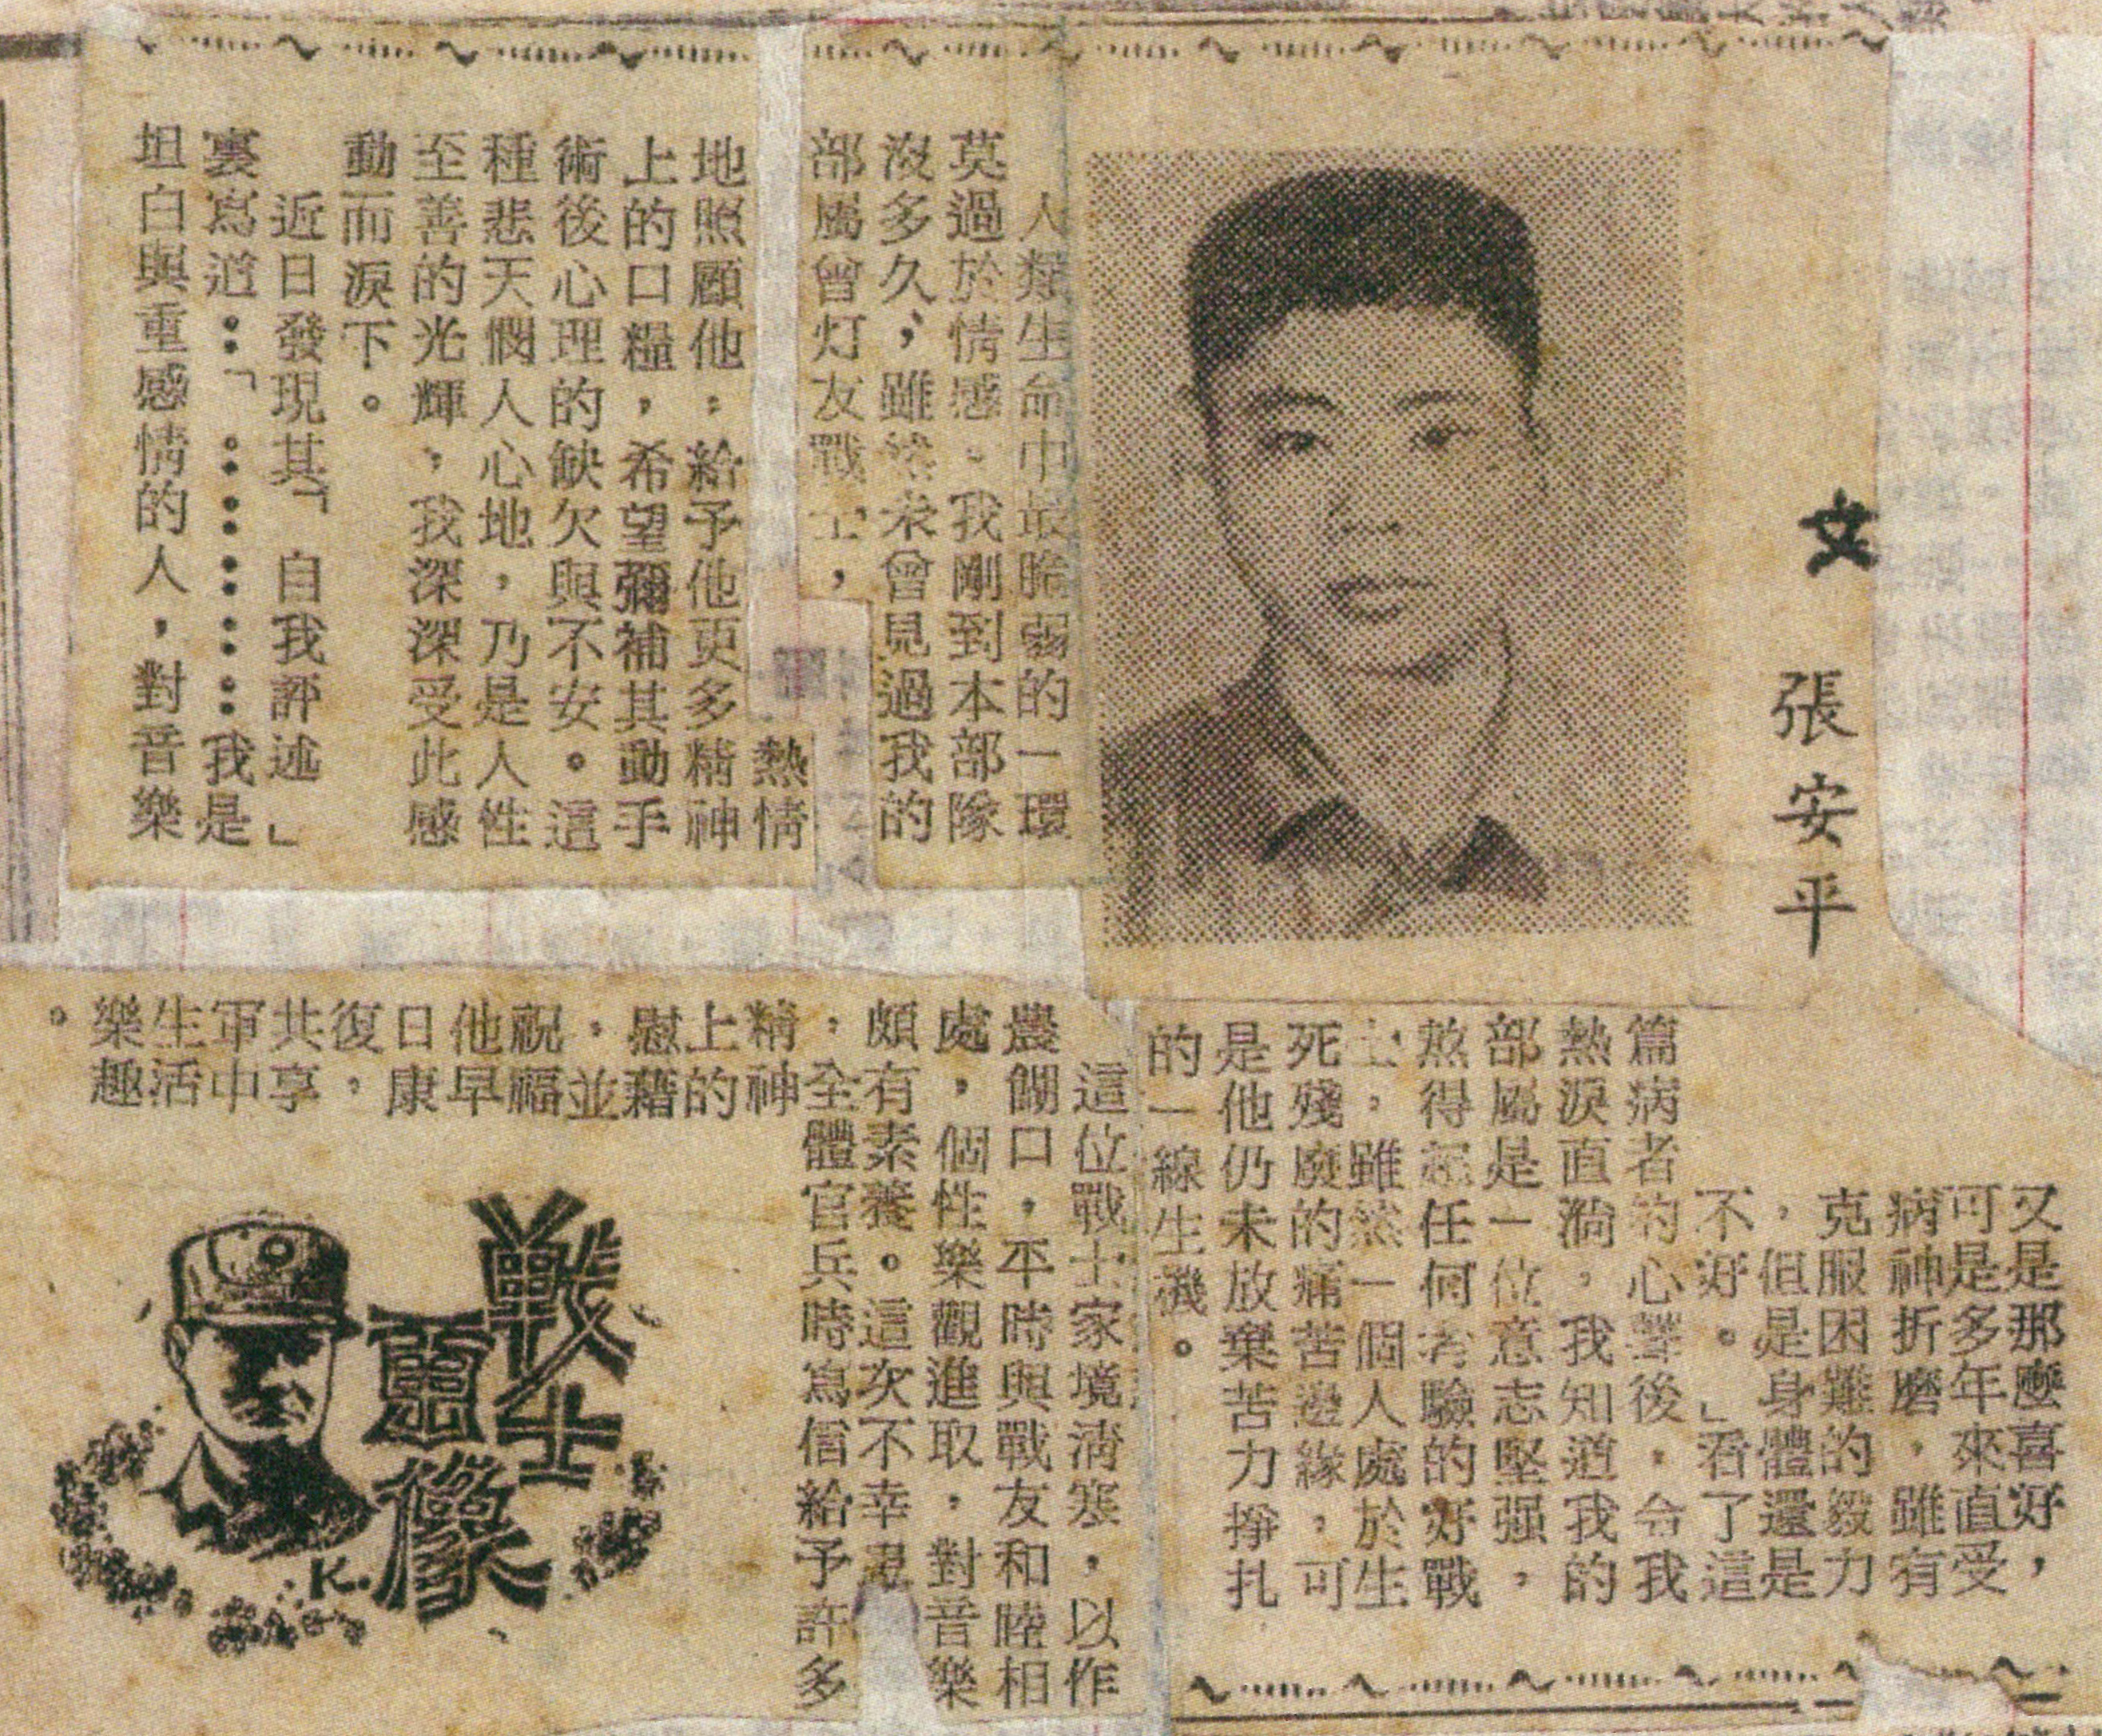 文 張安平
人類生命中最脆弱的一環
莫過於情感。我剛到本部隊
沒多久，雖然未曾見過我的
部屬曾灯友戰士，
熱情
地照顧他，給予他更多精神
上的口糧，希望彌補其動手
術後心理的缺欠與不安。這
種悲天憫人心地，乃是人性
至善的光輝，我深深受此感
動而淚下。
近日發現其「自我評述」
裏寫道：「………我是
坦白與重感情的人，對音樂
又是那麼喜好，
可是多年來直受
病神折磨，雖有
克服困難的毅力
，但是身體還是
不好。」看了這
篇病者的心聲後，令我
熱淚直淌，我知道我的
部屬是一位意志堅强，
熬得起任何考驗的好戰
士，雖然一個人處於生
死殘廢的痛苦邊緣，可
是他仍未放棄苦力掙扎
的一線生機。
這位戰士家境清寒，以作
農餬口，平時與戰友和睦相
處，個性樂觀進取，對音樂
頗有素養。這次不幸
，全體官兵時寫信給予許多
精神
上的
慰藉
，並
祝福
他早
日康
復，
共享
軍中
生活
樂趣
。
戰士畫像
K.